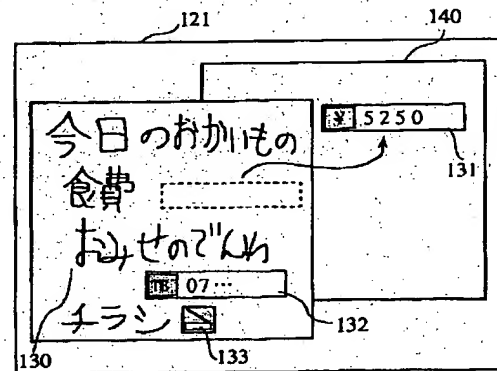 121
140
今日のおかいもの
¥ 5250
131
食費
おみせのでんわ
07…
132
チラシ
130
133